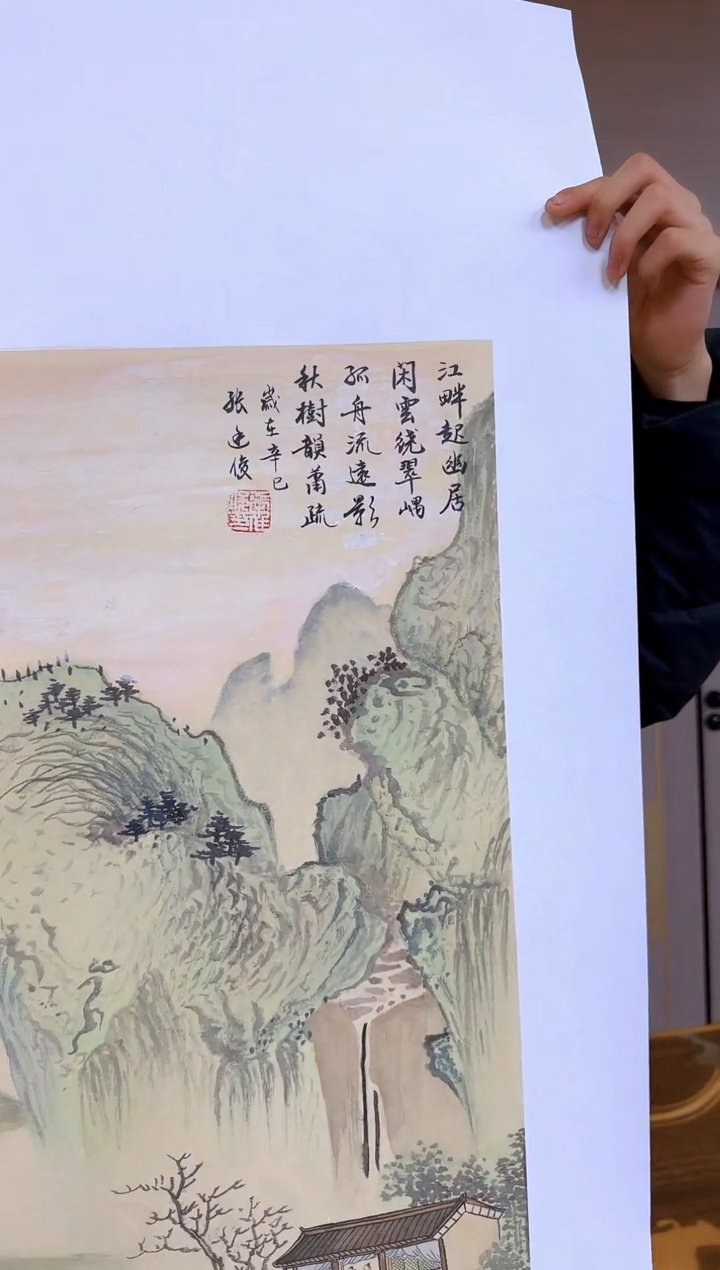 江畔起幽居
闲雲繞翠嵎
孤舟流遠影
秋樹韻蕭疏
歲在辛巳
張廷俊